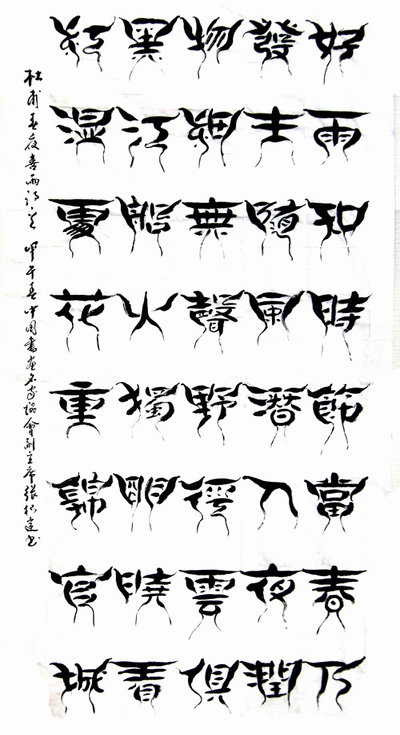 好雨知時節當春乃
發生隨風潛入夜潤
物細無聲野徑雲俱
黑江船火獨明曉看
紅湿處花重錦官城
杜甫春夜喜雨詩 甲午春中国書画名家協會副主席張松建书